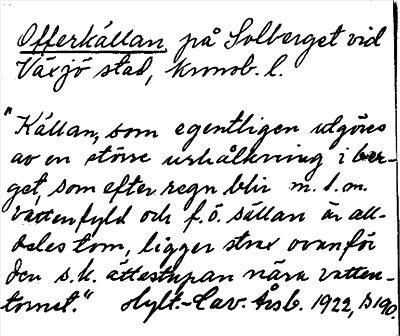 Offerkällan på Solberget vid
Växjö stad, Kronob. l.
"Källan, som egentligen utgöres
av en större urhålkning i ber-
get, som efter regn blir m. l. m.
vattenfyld och f. ö. sällan är all-
deles tom, ligger strax ovanför
den s. k. ättestupan nära vatten-
tornet." Hylt.-Cav. Årsb. 1922, s 190.